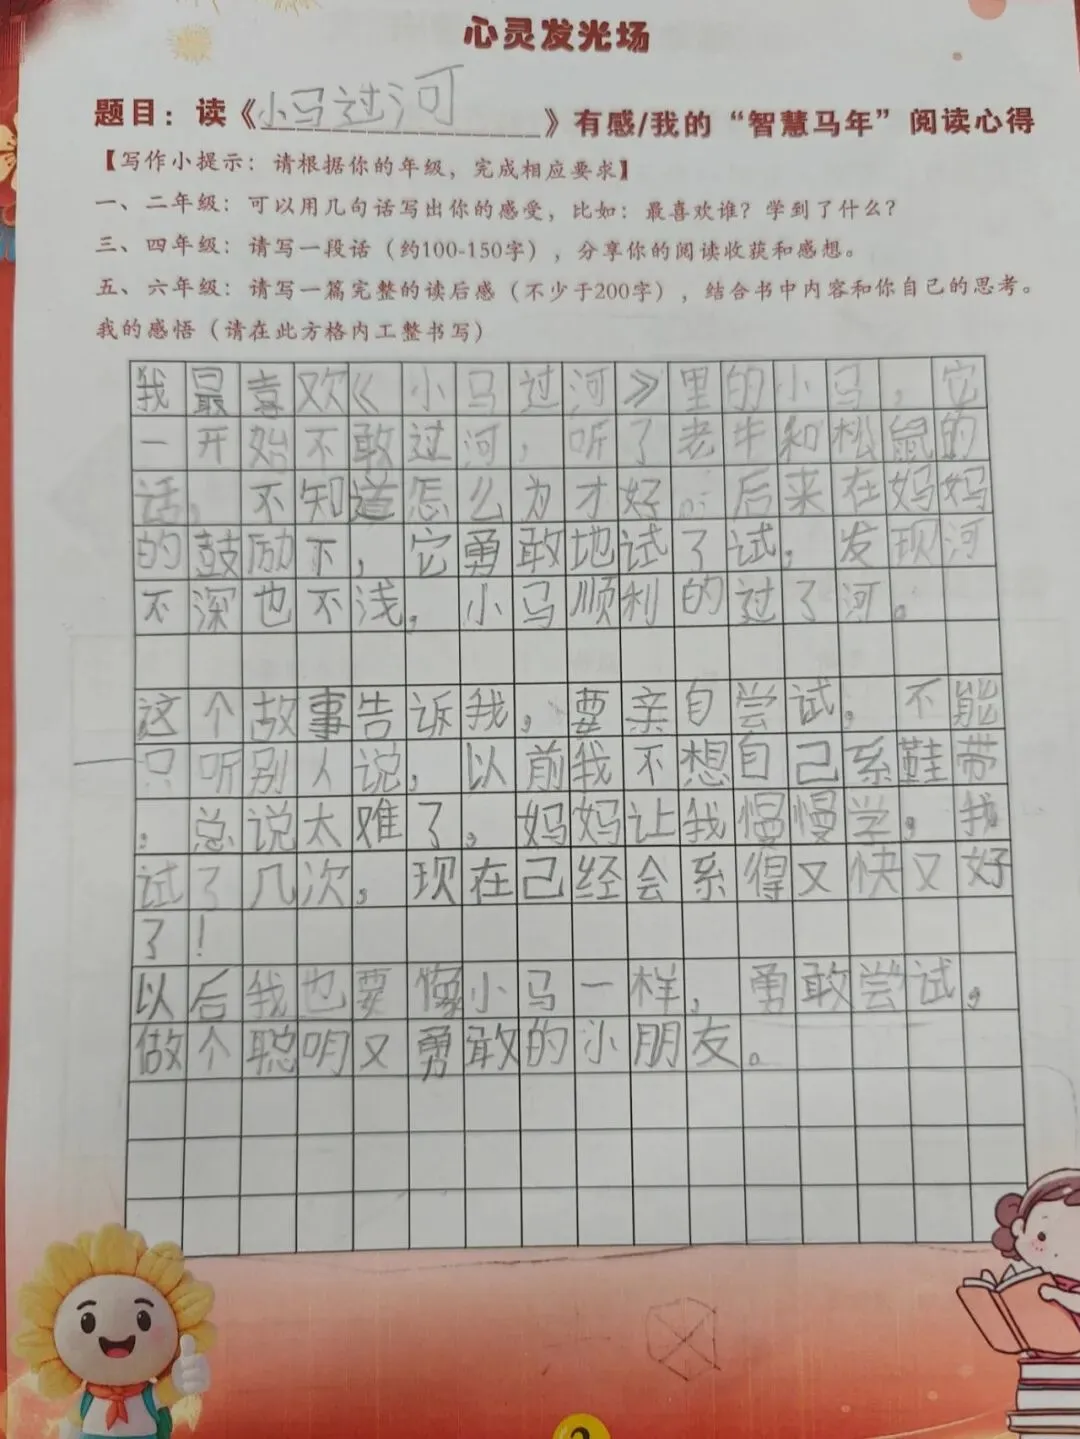 心灵发光场
题目：读《小马过河》有感/我的“智慧马年”阅读心得
【写作小提示：请根据你的年级，完成相应要求】
一、二年级：可以用几句话写出你的感受，比如：最喜欢谁？学到了什么？
三、四年级：请写一段话（约100-150字），分享你的阅读收获和感想。
五、六年级：请写一篇完整的读后感（不少于200字），结合书中内容和你自己的思考。
我的感悟（请在此方格内工整书写）
我最喜欢《小马过河》里的小马，它
一开始不敢过河，听了老牛和松鼠的
话，不知道怎么为才好。后来在妈妈
的鼓励下，它勇敢地试了试，发现河
不深也不浅，小马顺利的过了河。
这个故事告诉我，要亲自尝试，不能
只听别人说，以前我不想自己系鞋带
。总说太难了，妈妈让我慢慢学，我
试了几次，现在己经会系得又快又好
了！
以后我也要像小马一样，勇敢尝试，
做个聪明又勇敢的小朋友。
2